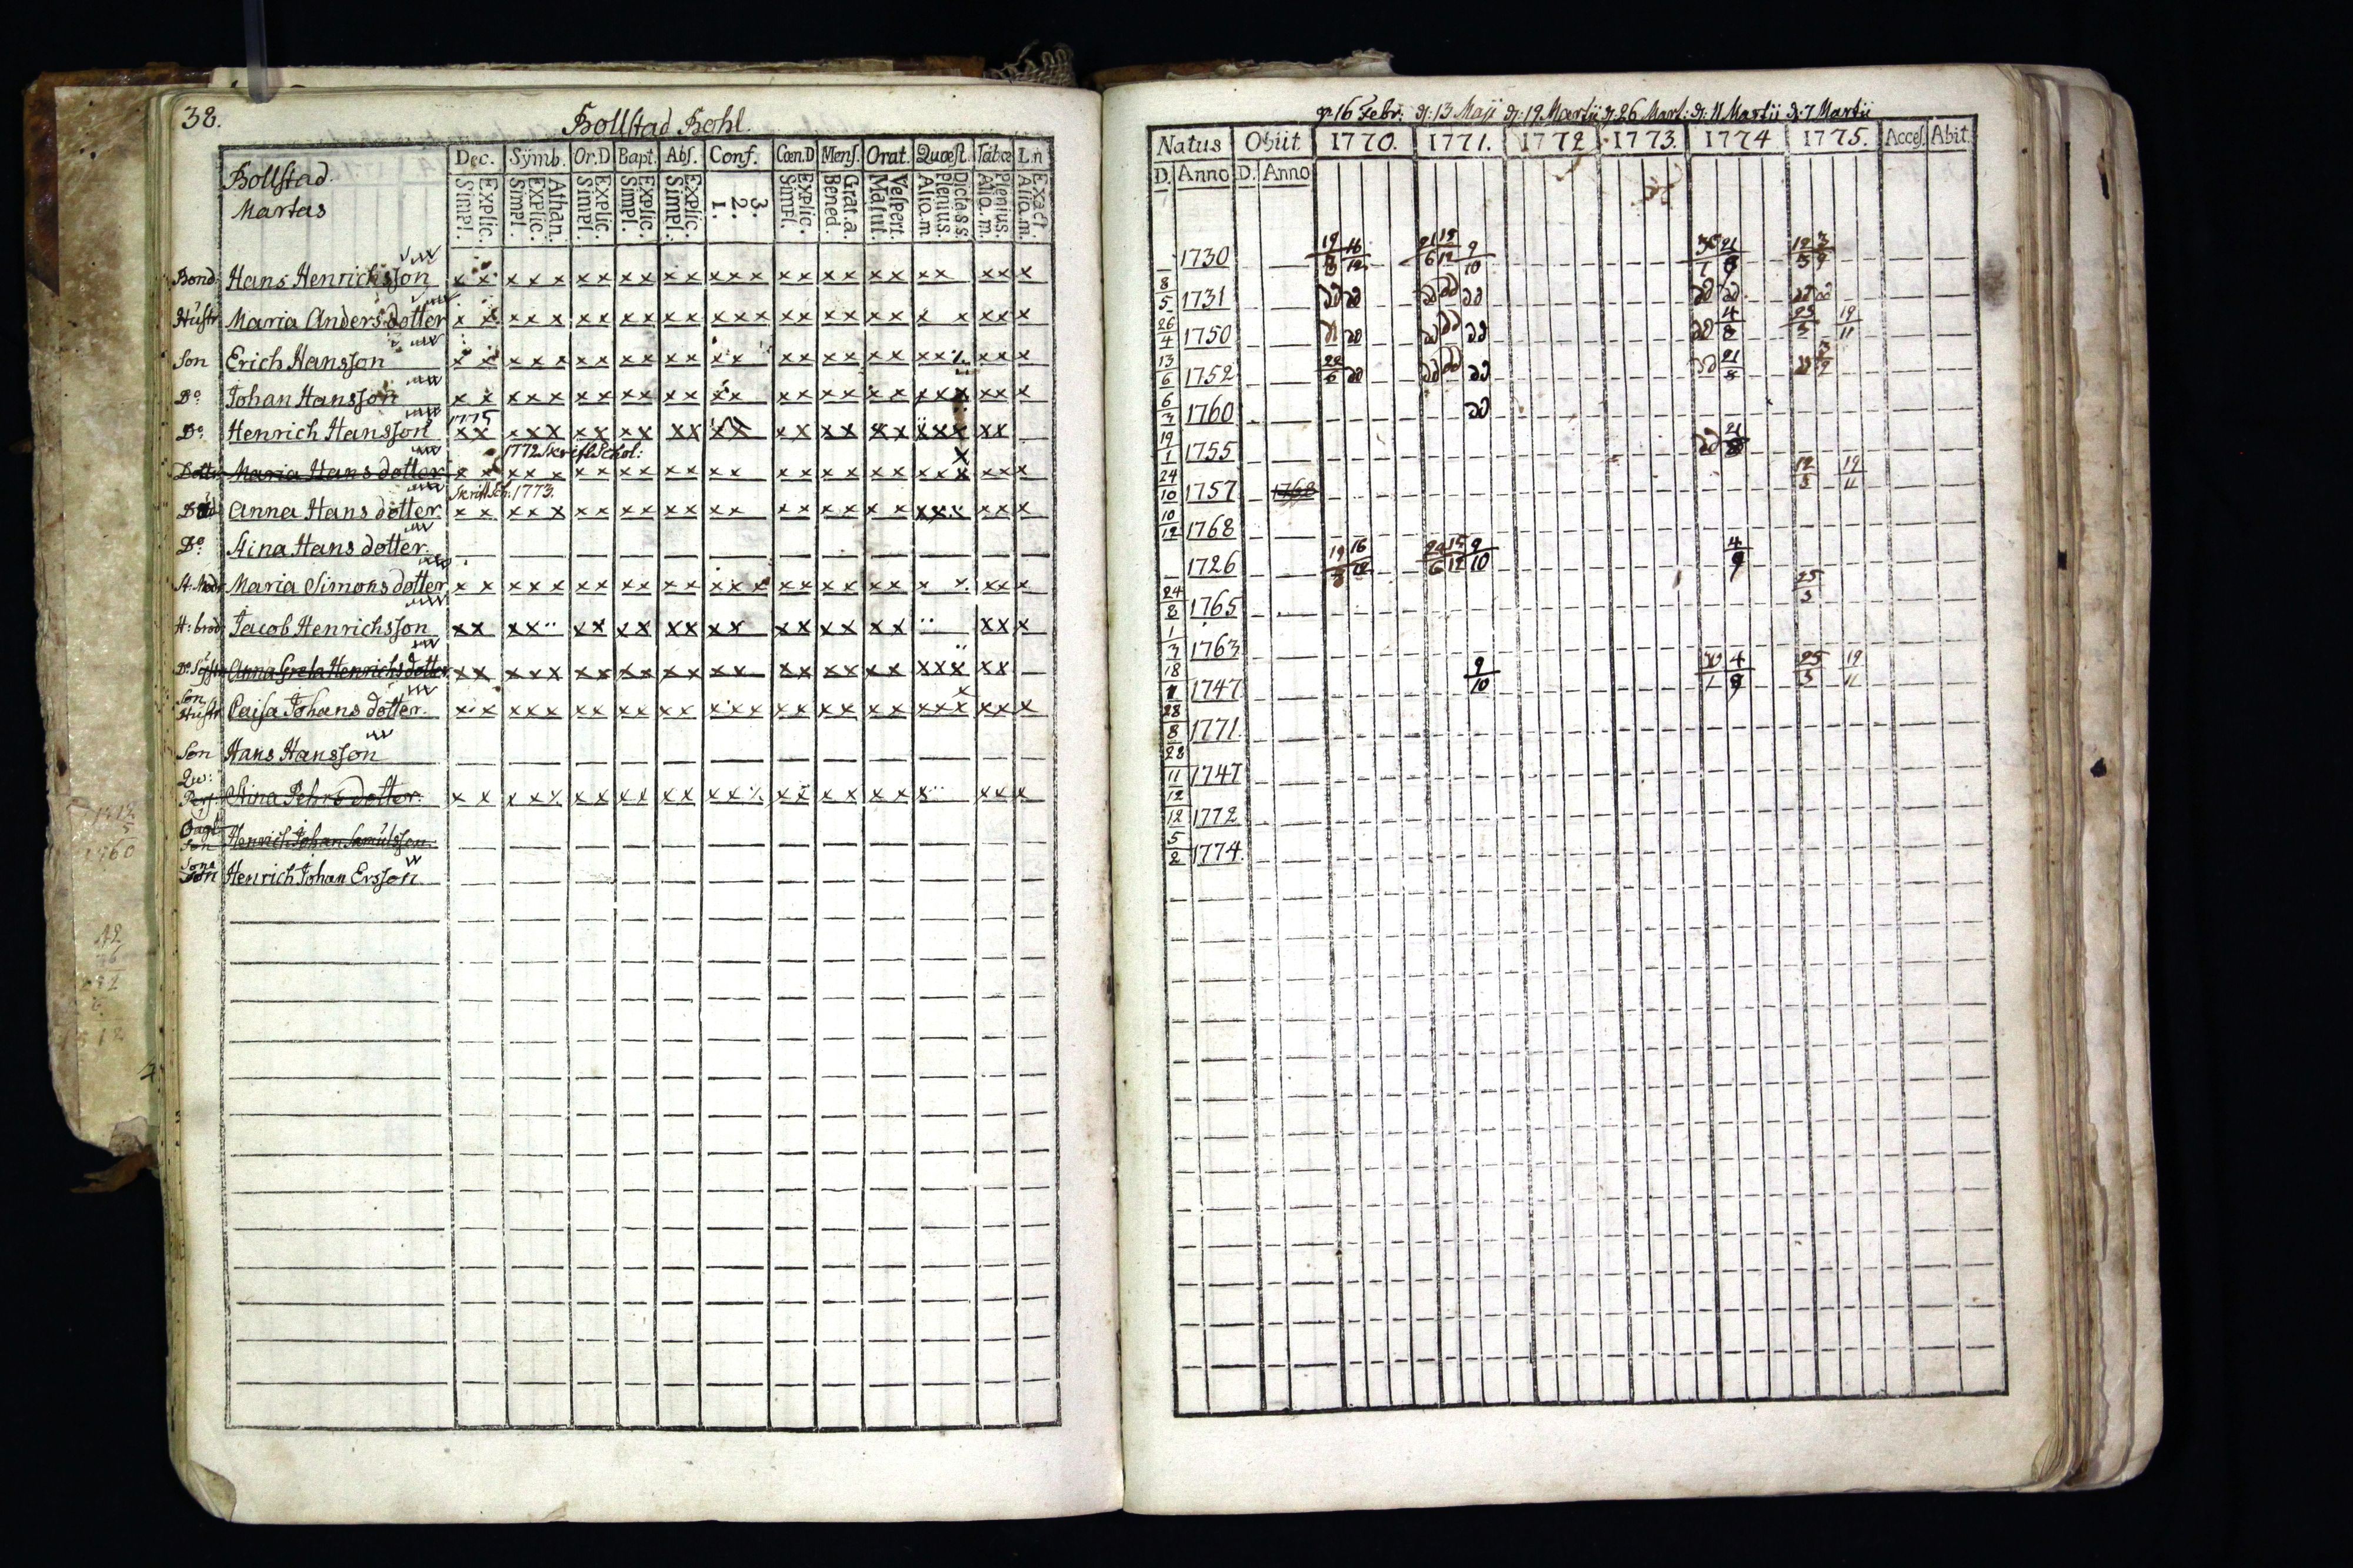 38.
Bollstad Bohl.
Bollstad
Martas
Dec. Symb. Or.D Bapt. Abs. Conf. Cœn.D Mens. Orat. Quæst. Tabcæ I.n
Simpl. Explic. Simpl. Explic. Athan. Simpl. Explic. Simpl. Explic. Simpl. Explic. 1. 2. 3. Simpl. Explic. Bened. Grat.a. Matut. Vespert. Aliq.m plenius. Dicta s.s. Aliq.m. Plenius. Aliq.m. Exact.
Bond. Hans Henrichsson x x x x x x x x x x x x x x x x x x x x x x x x
Hustr Maria Andersdotter x x x x x x x x x x x x x x x x x x x x x x x x
Son Erich Hansson x x x x x x x x x x x x x x x x x x x x x x x
Do. Johan Hansson x x x x x x x x x x x x x x x x x x x x x x x x
1775
Do. Henrich Hansson x x x x x x x x x x x x x x x x x x x x x x x
1772 Skrift Schol:
Dotter Maria Hans dotter x x x x x x x x x x x x x x x x x x x x x x x x
Skrift Sch. 1773.
Anna Hans dotter x x x x x x x x x x x x x x x x x x x x x x x
Do. Stina Hans dotter.
St. Mod Maria Simons dotter x x x x x x x x x x x x x x x x x x x x x x x
H: brod Jacob Henrichsson x x x x x x x x x x x x x x x x x x x x x
Do Syst Anna Greta Henrichsdotter x x x x x x x x x x x x x x x x x x x x x x x
Son
Hustr Caisa Johans dotter. x x x x x x x x x x x x x x x x x x x x x x x x x
Son Hans Hansson
Qw:
Pers: Stina Pehrs dotter x x x x x x x x x x x x x x x x x x x x x
Son Henrich Johan Samulsson.
Sons
Son Henrich Johan Ersson
d: 16 Febr: d: 13 Maji d: 19 Martii d: 26 Mart: d: 11 Martii d: 7 Martii
Natus Obiit 1770. 1771. 1772 1773. 1774 1775. Acces. Abit
D. Anno D. Anno
1730 19 16 12 21 15 9 6 12 10 21 12 3 5 9
8 5 1731
26 4 1750 4 8 25 5 19 11
13 6 1752 22 6 21 8 3 9
6 3 1760
19 1 1755 21 8
24 10 1757 1768 12 5 19 11
10 12 1768
1726 19 16 12 15 9 6 12 10 4 9
24 8 1765 25 5
1 3 1763
18 1 1747 9 10 4 9 25 5 19 11
28 8 1771.
28 11 1747
12 12 1772
5 2 1774.